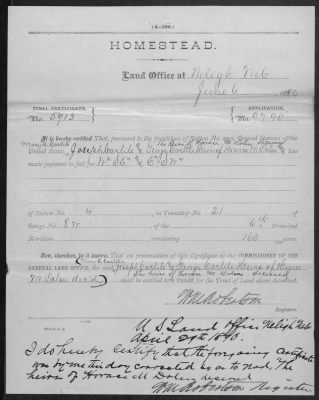 (4-196.)
HOMESTEAD.
Land Office at Neligh Neb
June 6 1890
FINAL CERTIFICATE,
No. 5913
APPLICATION,
No. 9790
It is hereby certified That, pursuant to the provisions of Section No. 2291, Revised Statutes of the
Mary A. Carlile The heirs of Horace M Dolen deceased
United States, Joseph Carlile & George Carlile Heirs of Horace M Dolen has
made payment in full for
of Section No. 4, in Township No. 21
of Range No. 8 W, of the 6th Principal
Meridian containing 160 acres.
Now, therefore, be it known, That on presentation of this Certificate to the COMMISSIONER OF THE
GENERAL LAND OFFICE, the said Joseph Carlile & George Carlile Heirs of Horace
The heirs of Horace M Dolen deceased
M Dolen dec'd shall be entitled to a Patent for the Tract of Land above
described.
Register.
U S Land Office Neligh Neb
April 29th 1890.
I do hereby certify that the forgoing certificate
was by me this day corrected so as to read The
heirs of Horace M Dolen deceased
Register